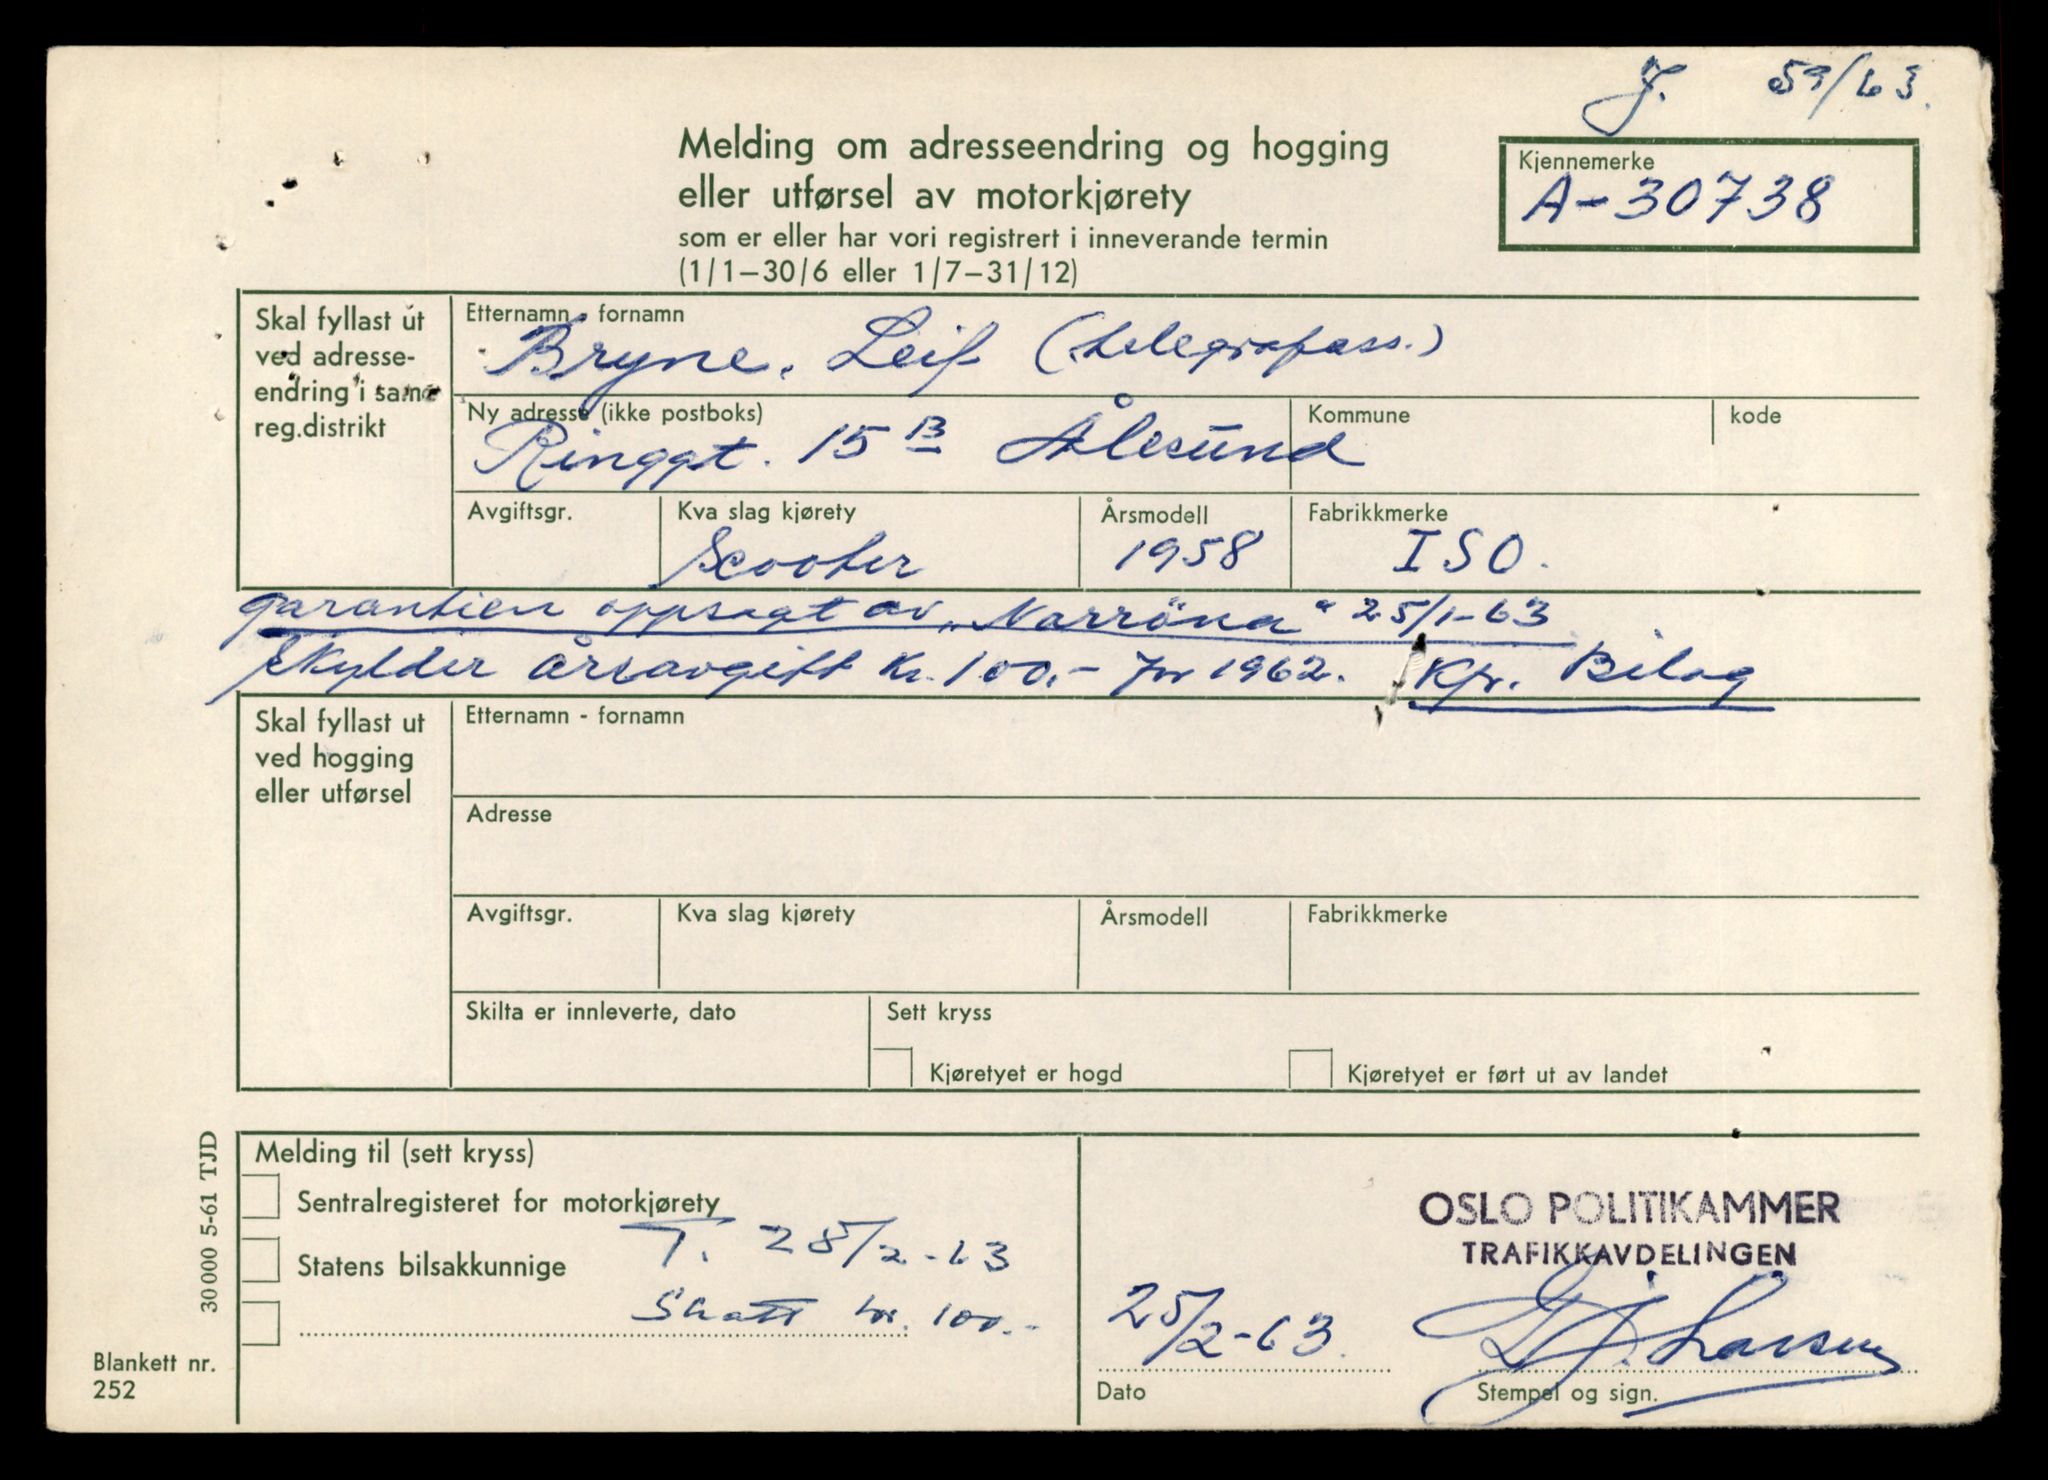 J. 59/63.
Melding om adresseendring og hogging
eller utførsel av motorkjørety
som er eller har vori registrert i inneverande termin
(1/1–30/6 eller 1/7–31/12)
Kjennemerke
A-30738
Skal fyllast ut
ved adresse-
endring i same
reg.distrikt
Etternamn - fornamn
Bryne, Leif (telegrafass.)
Ny adresse (ikke postboks)
Kommune
kode
Ringgt. 15 B Ålesund
Avgiftsgr.
Kva slag kjørety
Årsmodell
Fabrikkmerke
Scooter
1958
ISO.
garantien oppsagt av „Norröna" 25/1-63
Skylder årsavgift kr. 100.- for 1962. Kfr. Bilag
Skal fyllast ut
ved hogging
eller utførsel
Etternamn - fornamn
Adresse
Avgiftsgr.
Kva slag kjørety
Årsmodell
Fabrikkmerke
Skilta er innleverte, dato
Sett kryss
Kjøretyet er hogd
Kjøretyet er ført ut av landet
Melding til (sett kryss)
Sentralregisteret for motorkjørety
Statens bilsakkunnige
T. 28/2-63
Skatt kr. 100.-
OSLO POLITIKAMMER
TRAFIKKAVDELINGEN
25/2-63.
Larsen
Dato
Stempel og sign.
30000 5-61 TJD
Blankett nr.
252